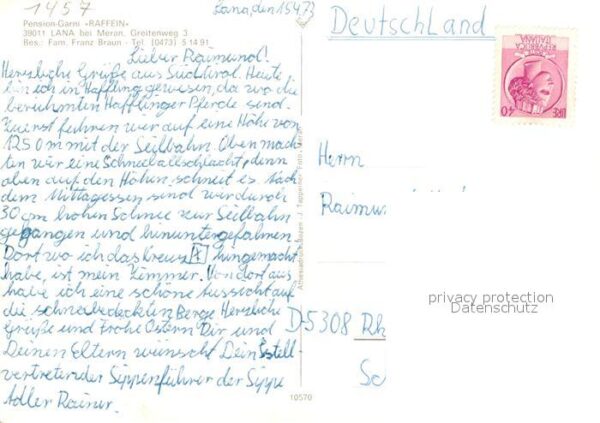 1457
Lana, den 15.4.73
Pension-Garni «RAFFEIN»
39011 LANA bei Meran, Greitenweg 3
Bes.: Fam. Franz Braun - Tel. (0473) 5 14 91
Lieber Raimund!
Herzliche Grüße aus Südtirol. Heute
bin ich in Hafling gewesen, da wo die
berühmten Hafflinger Pferde sind.
Zuerst fuhren wir auf eine Höhe von
1250 m mit der Seilbahn. Oben mach-
ten wir eine Schneeballschlacht, denn
oben auf den Höhen, schneit es. Nach
dem Mittagessen sind wir durch
30 cm hohen Schnee zur Seilbahn
gegangen und hinuntergefahren.
Dort wo ich das Kreuz [x] hingemacht
habe, ist mein Zimmer. Von dort aus
habe ich eine schöne Aussicht auf
die schneebedeckten Berge. Herzliche
Grüße und frohe Ostern Dir und
Deinen Eltern wünscht Dein stell-
vertretender Sippenführer der Sippe
Adler Rainer.
10570
Deutschland
LIRE 40
REPUBBLICA
ITALIANA
Herrn
Raimu
D-5308 Rh
Sc
privacy protection
Datenschutz